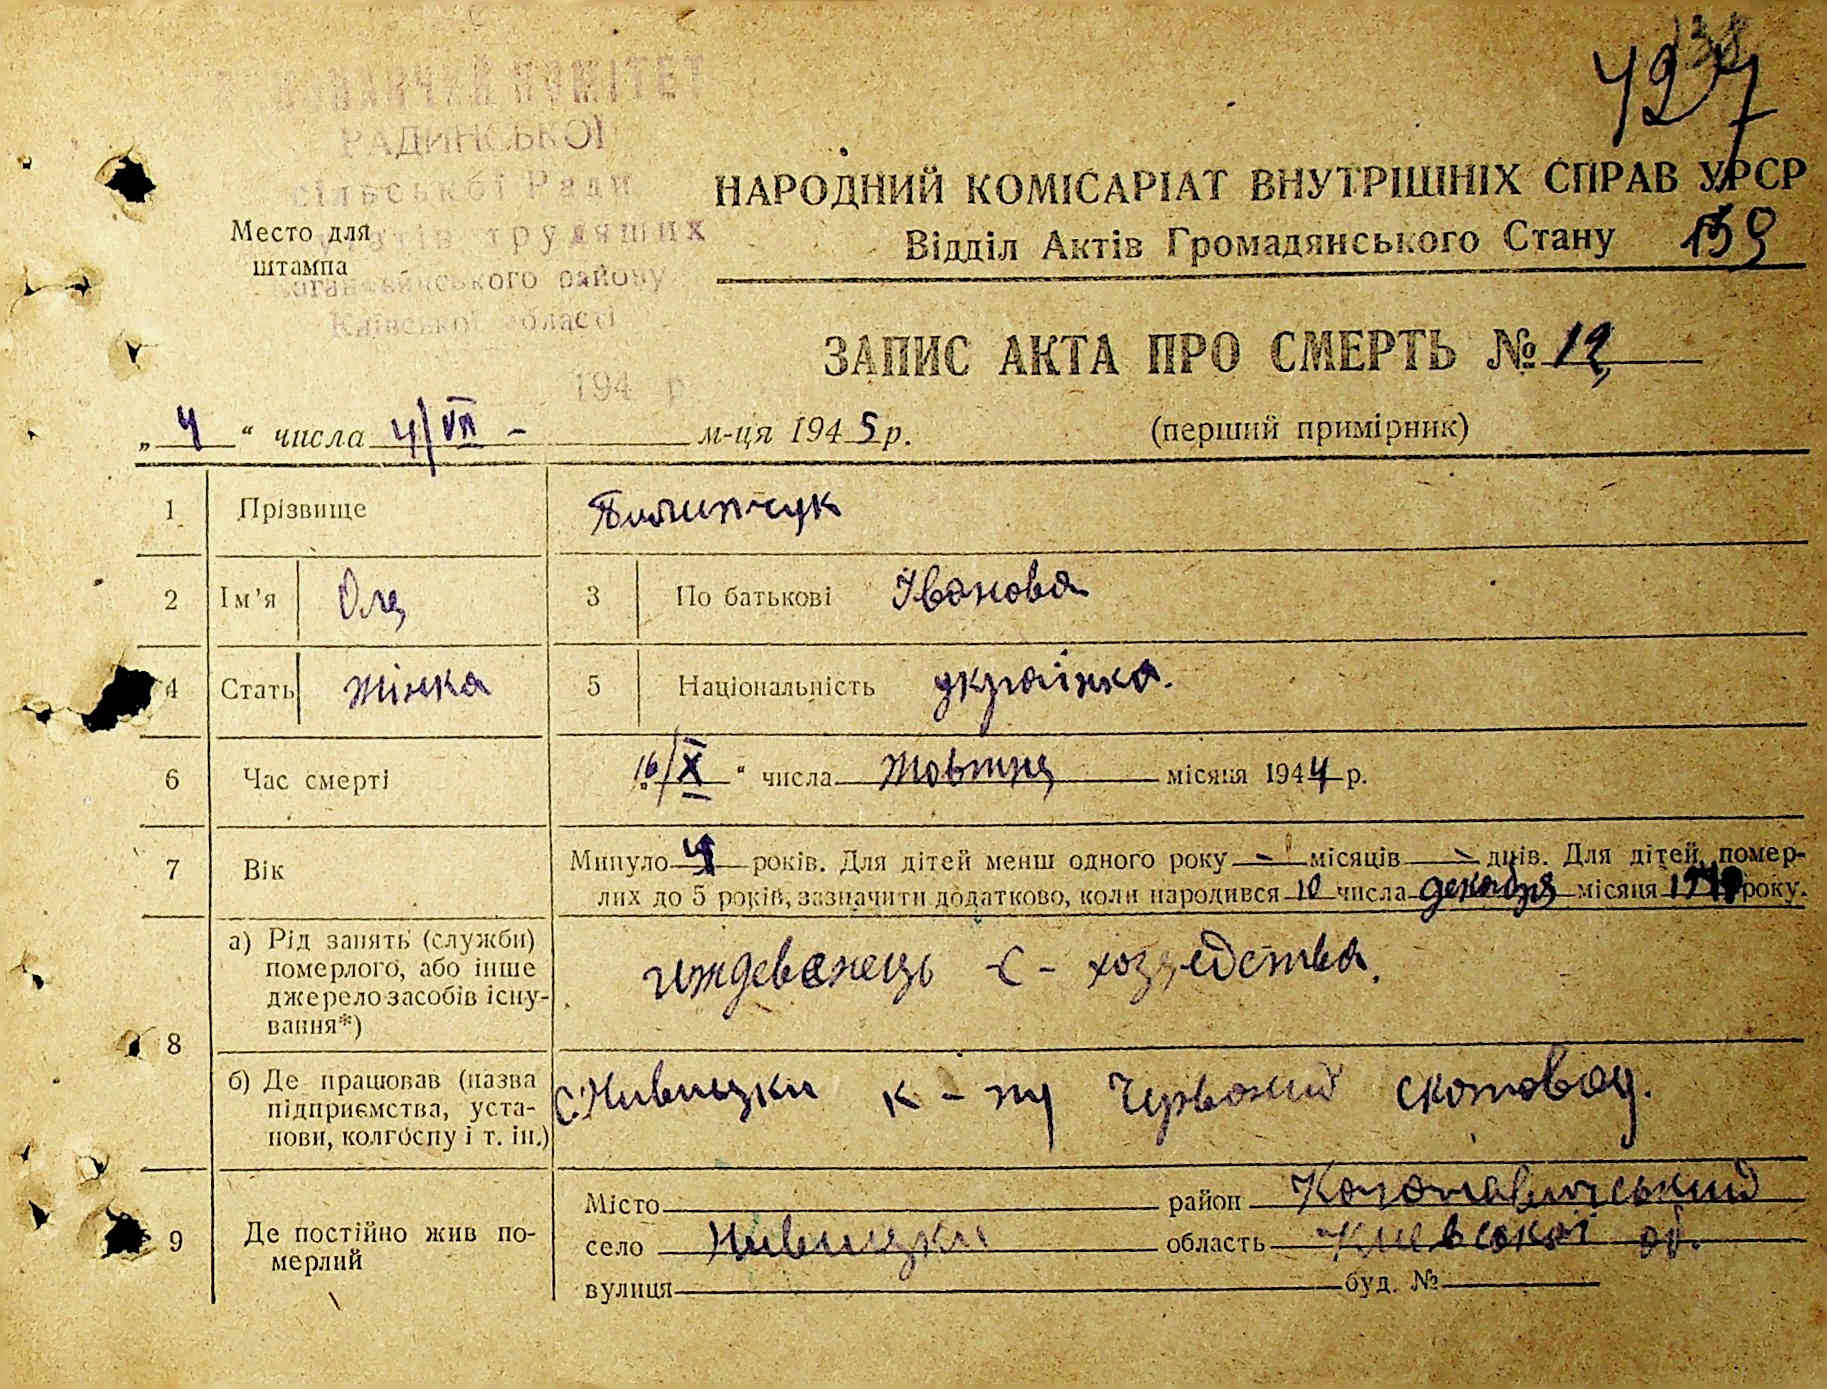 427
138
КОМІТЕТ
РАДИНСЬКОЇ
сільської Ради
трудящих
Место для
штампа
району
Київської області
194 р
НАРОДНИЙ КОМІСАРІАТ ВНУТРІШНІХ СПРАВ УРСР
Відділ Актів Громадянського Стану 139
ЗАПИС АКТА ПРО СМЕРТЬ № 12
„4“ числа 4/VII - м-ця 1945 р. (перший примірник)
1 Прізвище Пилипчук
2 Ім’я Оля 3 По батькові Іванова
4 Стать жінка 5 Національність українка.
6 Час смерті 16/X “ числа жовтня місяця 1944 р.
7 Вік Минуло 4 років. Для дітей менш одного року - місяців - днів. Для дітей, помер-
лих до 5 років, зазначити додатково, коли народився 10 числа декабря місяця року.
8 а) Рід занять (служби)
померлого, або інше
джерело засобів існу-
вання*)
иждевенець С - хозяедства.
б) Де працював (назва
підприємства, уста-
нови, колгоспу і т. ін.)
с. Нивицки к - пу Червоний скотовод.
9 Де постійно жив по-
мерлий
Місто район
село Нивицки область Киевської об.
вулиця буд. №